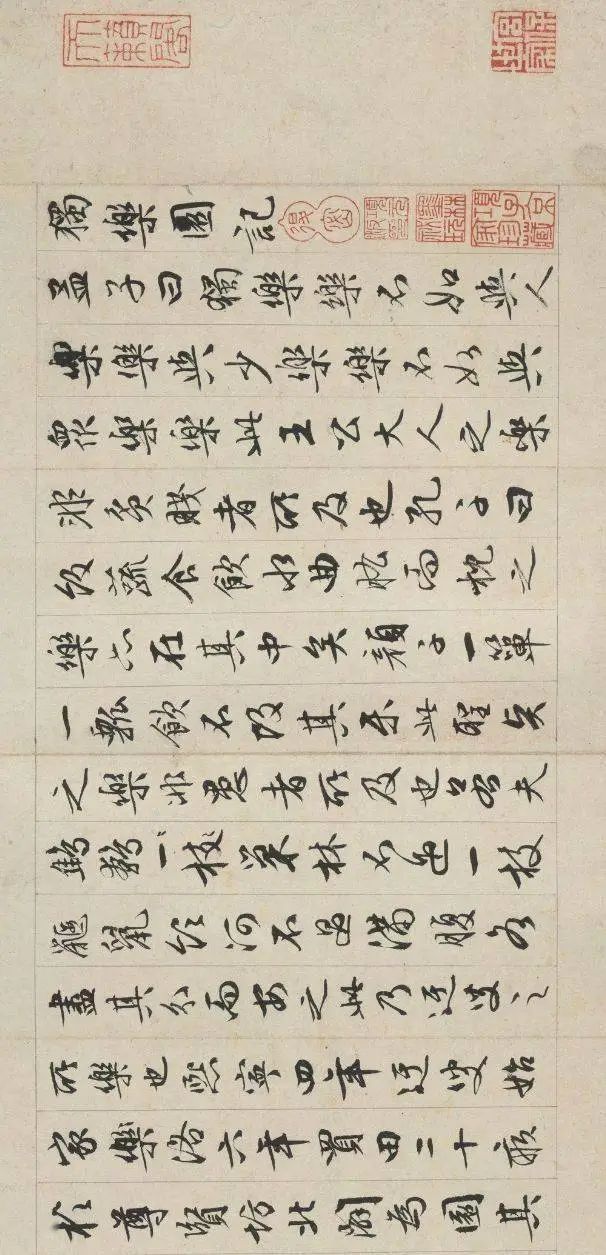 獨樂園記
孟子曰獨樂樂不如與人
樂樂與少樂樂不如與
衆樂樂此王公大人之樂
非貧賤者所及也孔子曰
飯蔬食飲水曲肱而枕之
樂亦在其中矣顏子一簞
一瓢飲不改其樂此聖賢
之樂非愚者所及也若夫
鷦鷯一枝巢林不過一枝
鼴鼠飲河不過滿腹各
盡其分而安之此乃迂叟之
所樂也熙寧四年迂叟始
家樂洛六年買田二十畝
於尊賢坊北闢為園其